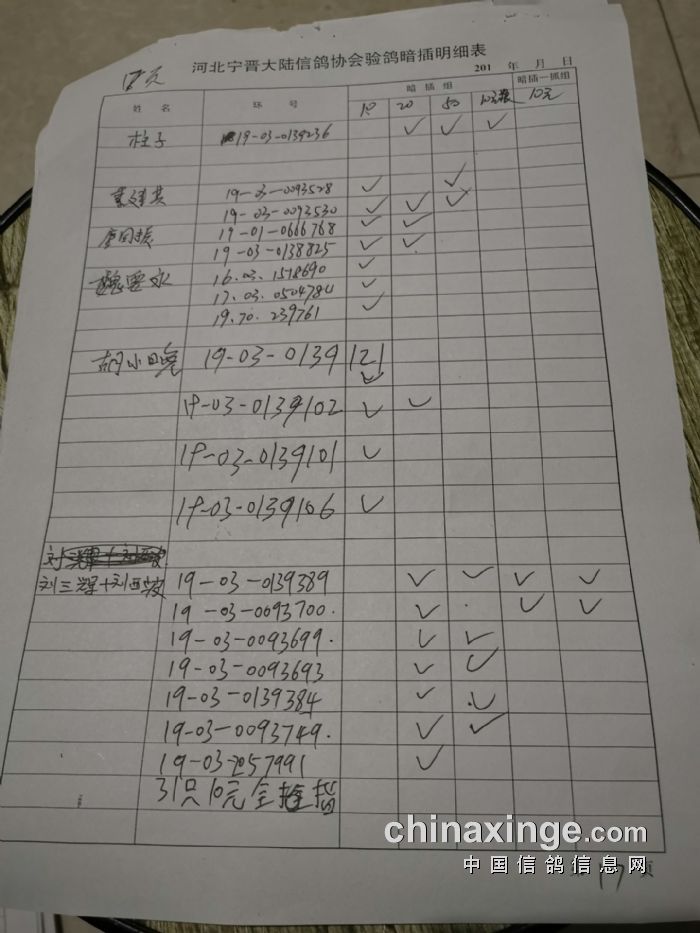 河北宁晋大陆信鸽协会验鸽暗插明细表
201 年 月 日
姓名 环号 暗插组 暗插一抓组
10 20 50 10元 10元
柱子 19-03-0139236 ✓ ✓ ✓
19-03-0093528 ✓ ✓
19-03-0093530 ✓ ✓ ✓
19-01-0666768 ✓ ✓
19-03-0138825 ✓ ✓
魏要永 16.03.1518690 ✓
17.03.0504784 ✓
19.70.239761 ✓
胡小晓 19-03-0139121 ✓
19-03-0139102 ✓ ✓
19-03-0139101 ✓
19-03-0139106 ✓
刘三辉+刘西坡 19-03-0139389 ✓ ✓ ✓ ✓
19-03-0093700. ✓ ✓ ✓
19-03-0093699. ✓ ✓
19-03-0093693 ✓ ✓
19-03-0139384 ✓ ✓
19-03-0093749. ✓ ✓
19-03-2057991 ✓
31只10元全
chinaxinge.com
中国信鸽信息网
第17页